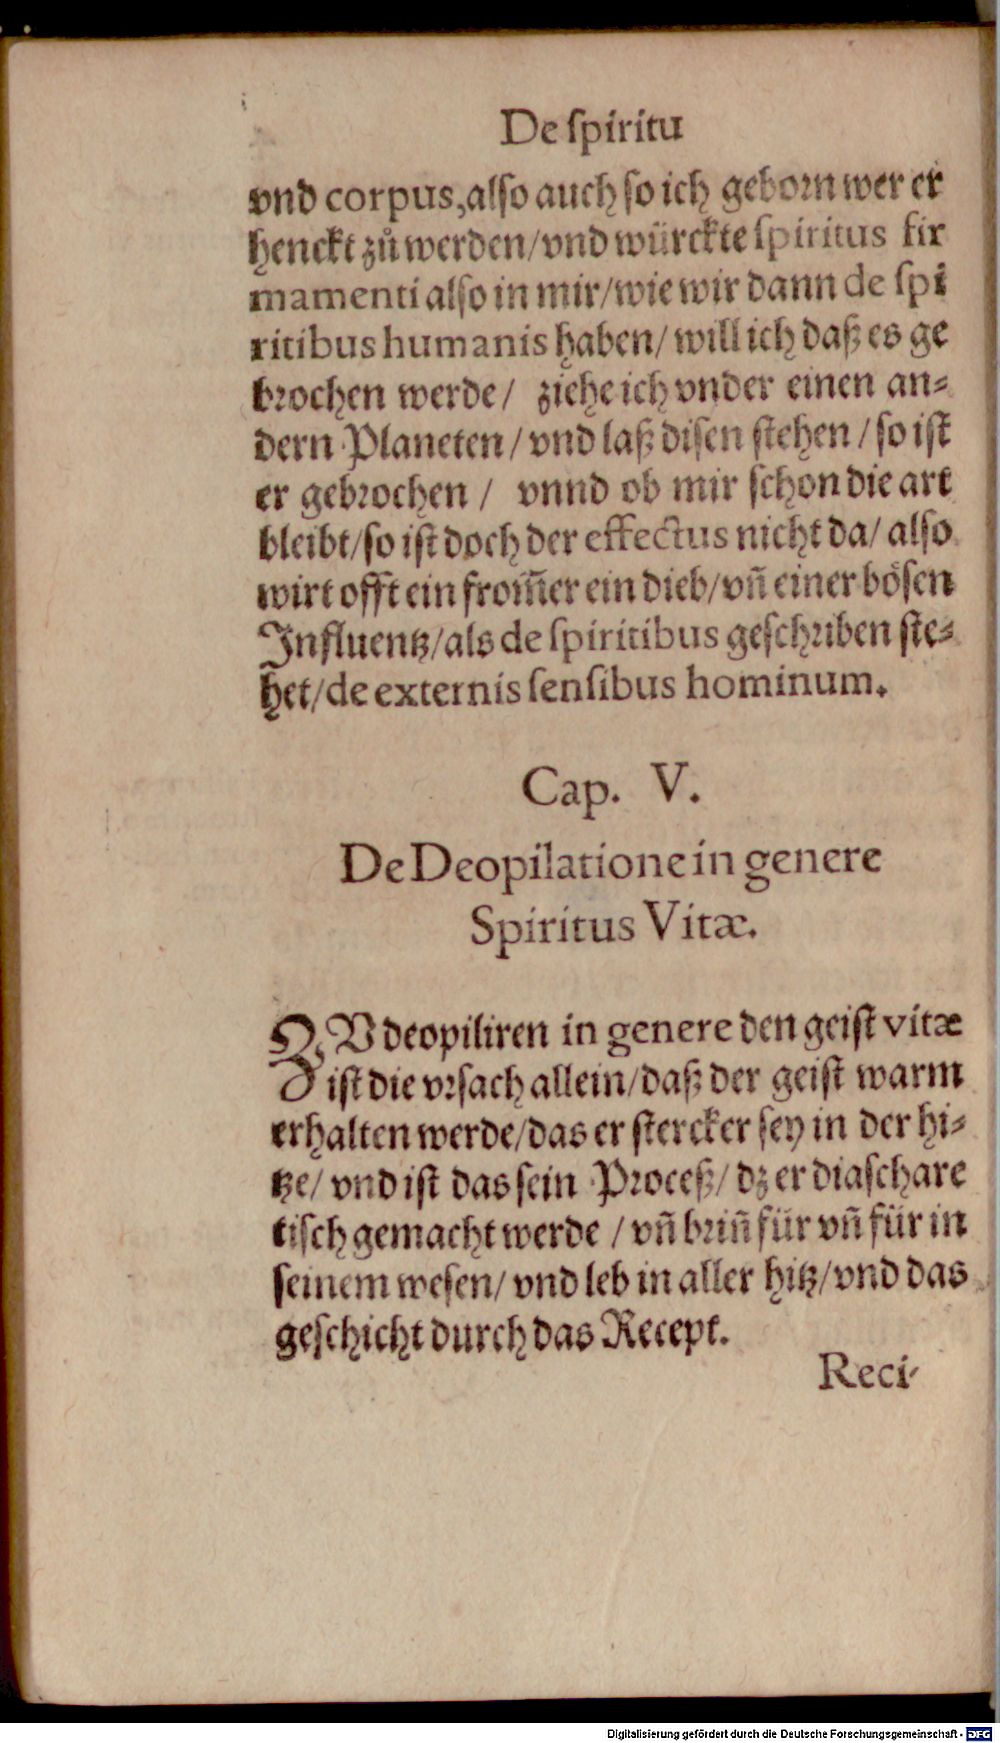 De ſpiritu
vnd corpus, alſo auch ſo ich geborn wer er
henckt zů werden/ vnd würckte ſpiritus fir
mamenti alſo in mir/ wie wir dann de ſpi
ritibus humanis haben/ will ich daß es ge
brochen werde/ ziehe ich vnder einen an⸗
dern Planeten/ vnd laß diſen ſtehen/ ſo iſt
er gebrochen/ vnnd ob mir ſchon die art
bleibt/ ſo iſt doch der effectus nicht da/ alſo
wirt offt ein from̃er ein dieb/ vñ einer böſen
Influentz/ als de ſpiritibus geſchriben ſte⸗
het/ de externis ſenſibus hominum.
Cap. V.
De Deopilatione in genere
Spiritus Vitæ.
ZV deopiliren in genere den geiſt vitæ
iſt die vrſach allein/ daß der geiſt warm
erhalten werde/ das er ſtercker ſey in der hi⸗
tze/ vnd iſt das ſein Proceß/ dz er diaſchare
tiſch gemacht werde/ vñ briñ für vñ für in
ſeinem weſen/ vnd leb in aller hitz/ vnd das
geſchicht durch das Recept.
Reci-
Digitalisierung gefördert durch die Deutsche Forschungsgemeinschaft - DFG